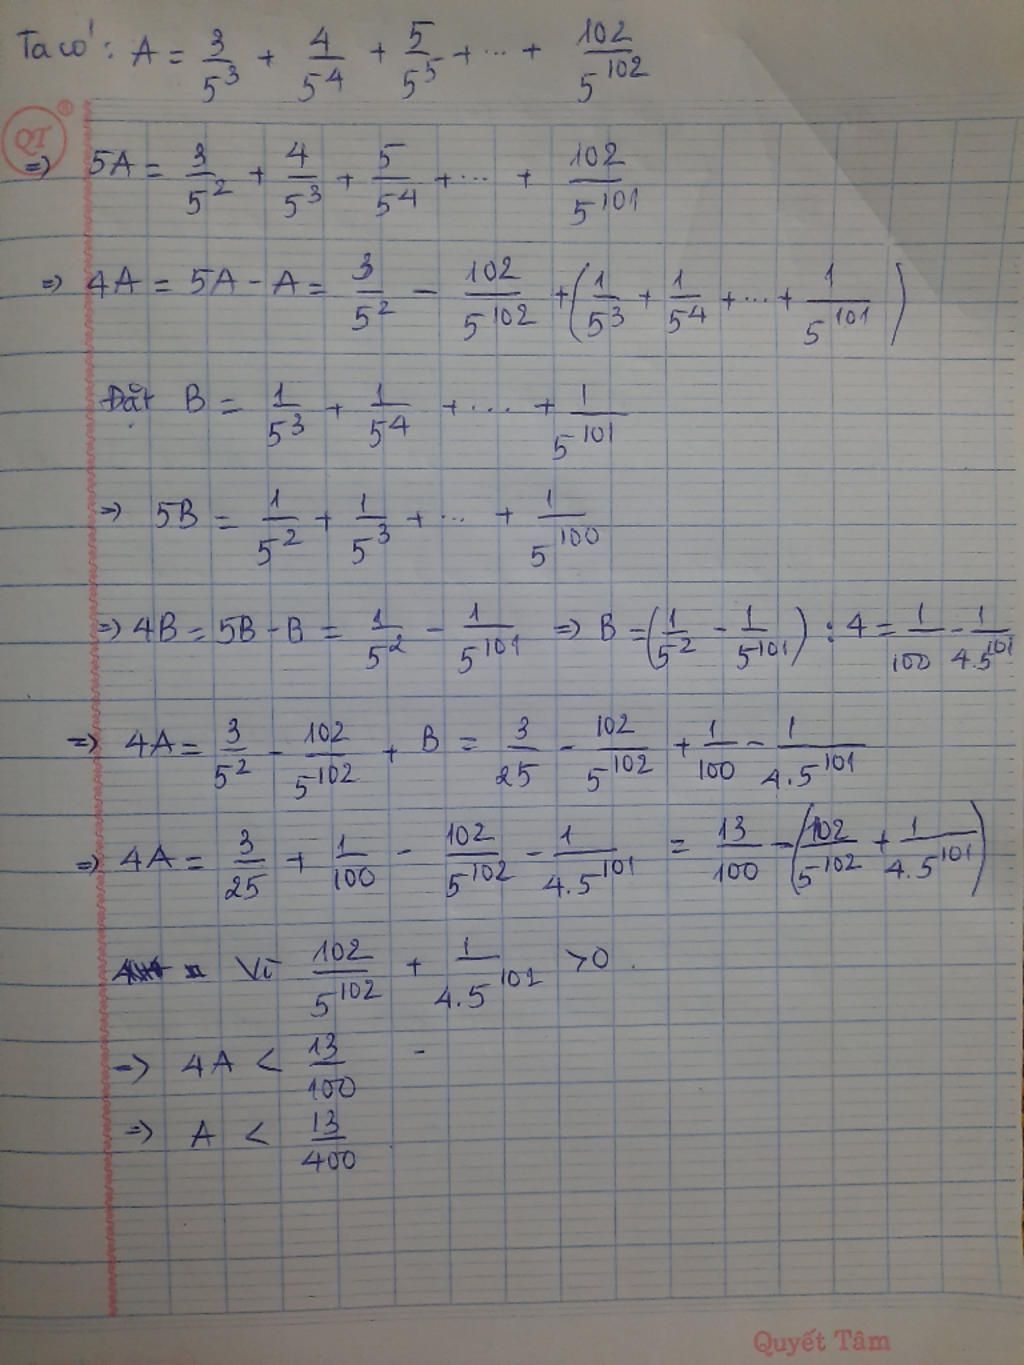 Ta có: A = 3/5^3 + 4/5^4 + 5/5^5 + ... + 102/5^102
QT ®
=> 5A = 3/5^2 + 4/5^3 + 5/5^4 + ... + 102/5^101
=> 4A = 5A - A = 3/5^2 - 102/5^102 + (1/5^3 + 1/5^4 + ... + 1/5^101)
Đặt B = 1/5^3 + 1/5^4 + .... + 1/5^101
=> 5B = 1/5^2 + 1/5^3 + ... + 1/5^100
=> 4B = 5B - B = 1/5^2 - 1/5^101 => B = (1/5^2 - 1/5^101) : 4 = 1/100 - 1/4.5^101
=> 4A = 3/5^2 - 102/5^102 + B = 3/25 - 102/5^102 + 1/100 - 1/4.5^101
=> 4A = 3/25 + 1/100 - 102/5^102 - 1/4.5^101 = 13/100 - (102/5^102 + 1/4.5^101)
Vì 102/5^102 + 1/4.5^102 > 0.
=> 4A < 13/100 -
=> A < 13/400
Quyết Tâm